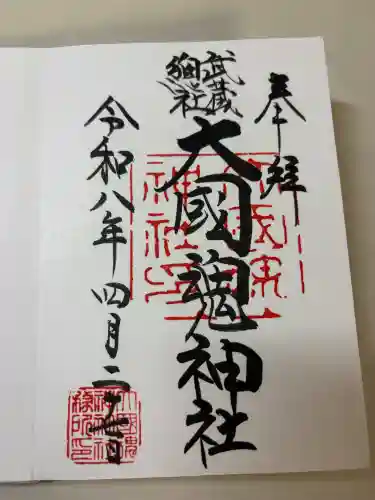 奉拝
武蔵
總社
大國魂神社
令和八年四月二十日